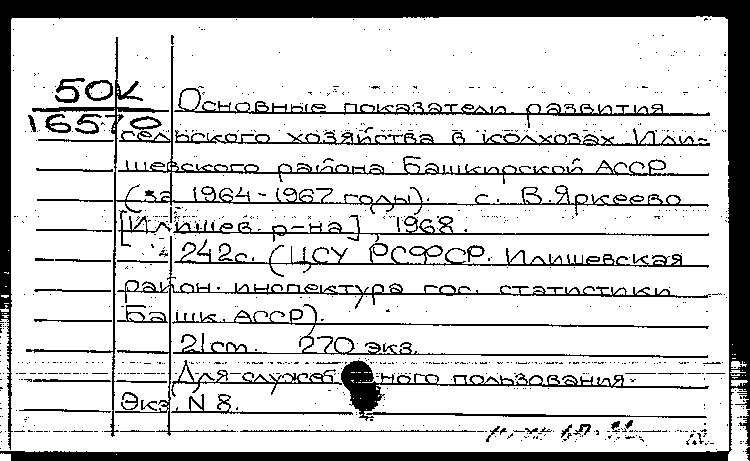 50К
16570
Основные показатели развития
сельского хозяйства в колхозах Или-
шевского района Башкирской АССР
(за 1964-1967 годы). с. В.Яркеево
[Илишев. р-на], 1968.
242с. (ЦСУ РСФСР. Илишевская
район. инспектура гос. статистики
Башк. АССР).
21см. 270 экз.
Для служебного пользования.
Экз. N 8.